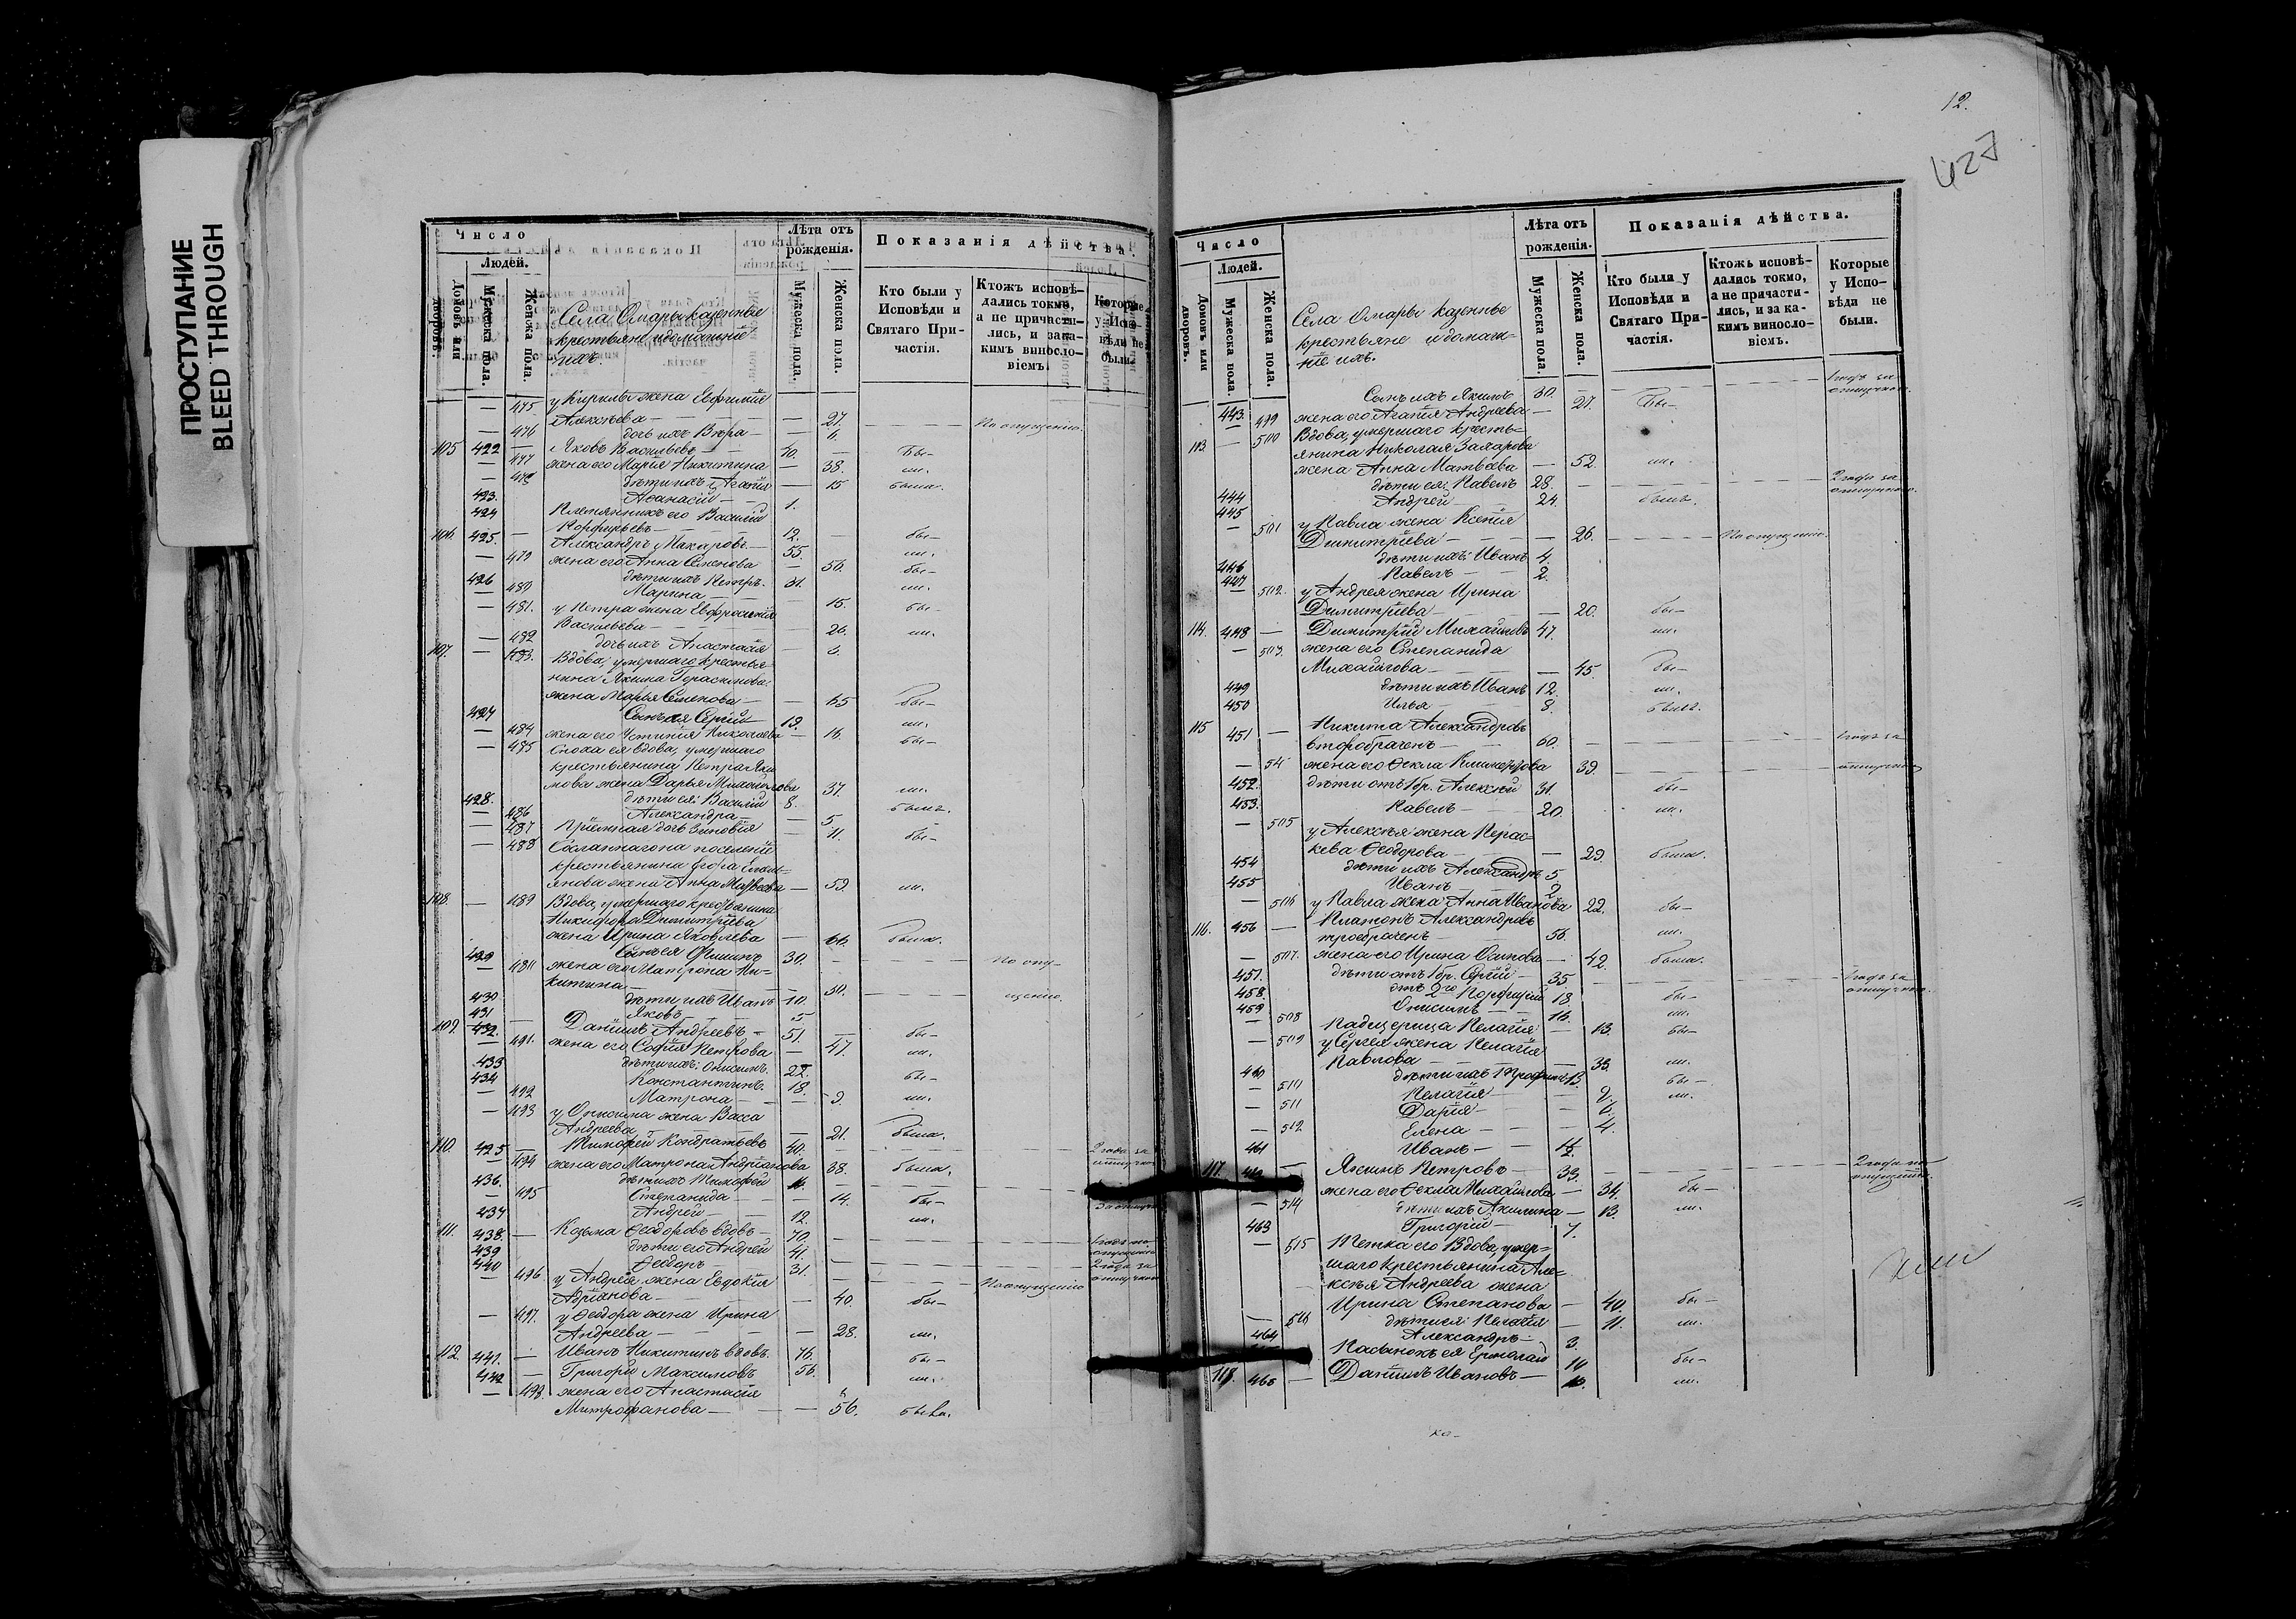 ПРОСТУПАНИЕ
BLEED THROUGH
Число
Людей.
Домовъ или дворовъ.
Мужеска пола.
Женска пола.
Села Омары казенные
крестьяне и домашніе
ихъ.
Лѣта отъ рожденія.
Мужеска пола.
Женска пола.
Показанія дѣйства.
Кто были у Исповѣди и Святаго Причастія.
Ктожъ исповѣдались токмо, а не причастились, и за какимъ винословіемъ.
Которые у Исповѣди не были.
— 475 у Кирилы жена Евфимія
Алексѣева — — 27. — По опущенію.
— 476 дочь ихъ Вѣра —
105 422 — Яковъ Васильевъ — 40. — бы—
— 477 жена его Марія Никитина — 38. ли.
— 478 дѣти ихъ Агафія — 15 была.
423. Аѳанасій — 1.
424 Племянникъ его Василій
Порфирьевъ — 12. — бы—
106. 425. — Александръ Макаровъ — 55. ли.
— 479 жена его Анна Семенова — 56. бы—
426 дѣти ихъ Петръ. 31. ли.
— 480 Марина — 15. бы—
— 481. у Петра жена Евфросинія
Васильева — 26. ли.
— 482 дочь ихъ Анастасія —
107. — 483. Вдова, умершаго крестья-
нина Якима Герасимова
жена Марья Семенова — 65 бы—
427 Сынъ ея Сергій — 19. ли.
— 484 жена его Устинія Николаева — 18. бы—
— 485 Сноха ея вдова, умершаго
крестьянина Петра Яки
мова жена Дарья Михайлова 37. ли.
428. дѣти ея: Василій 8. былъ.
— 486 Александра — 5.
— 487 Пріемная дочь Зиновія — 11. бы—
— 488 Сосланнаго на поселеніе
крестьянина
жена Анна Матвеева — 59. ли.
108 — 489 Вдова, умершаго крестьянина
Никифора Димитріева
жена Ирина Яковлева — 66. была.
429 Сынъ ея Филипъ 30. — По опу-
— жена его Матрона Ни-
китина — 30. — щенію.
430 дѣти ихъ Иванъ 10.
431 Яковъ — 5
109. 432. — Даніилъ Андреевъ — 51. — бы—
— 491. жена его София Петрова — 47. ли.
433 дѣти ихъ: Онисимъ. 22. бы—
434 Константинъ. 18. ли.
— 492 Матрона — 9.
— 493 у Онисима жена Васса
Андреева — 21. была.
110. 425 — Тимофей Кондратьевъ 40. — 2 года за
— 494 жена его Матрона Андріанова 38. была.
436. дѣти ихъ Тимофей
— 495 Степанида — 14. бы—
437 Андрей — 12. ли.
111. 438. — Козьма Ѳеодоровъ вдовъ — 70.
439 дѣти его Андрей 41.
440 Ѳеодоръ — 31. 2 года за
— 496 у Андрея жена Евдокія По опущенію
Адріанова — 40. бы—
— 497. у Ѳеодора жена Ирина
Андреева — 28. ли.
112. 441. — Иванъ Никитинъ вдовъ. 76. бы—
442 — Григорій Максимовъ 56. ли.
— 498. жена его Анастасія
Митрофанова — 56. была.
12.
427
Число
Людей.
Домовъ или дворовъ.
Мужеска пола
Женска пола.
Села Омары казенные
крестьяне и домаш-
ніе ихъ.
Лѣта отъ рожденія.
Мужеска пола.
Женска пола.
Показанія дѣйства.
Кто были у Исповѣди и Святаго Причастія.
Ктожъ исповѣдались токмо, а не причастились, и за какимъ винословіемъ.
Которые у Исповѣди не были.
443. Сынъ ихъ Якимъ 30. 1 годъ за
отлучкою.
— 499 жена его Агафія Андреева — 27. бы—
113. — 500 Вдова, умершаго кресть-
янина Николая Захарова
жена Анна Матвѣева — 52. ли.
444 дѣти ея: Павелъ 28. 2 года за
отлучкою.
445 Андрей — 24. былъ.
— 501 у Павла жена Ксенія
Димитріева — 26. По опущенію.
446 дѣти ихъ: Иванъ 4.
447 Павелъ — 2.
— 502. у Андрея жена Ирина
Димитріева — 20. бы—
114. 448 — Димитрій Михайловъ 47. ли.
— 503. жена его Степанида
Михайлова — 45. бы—
449 дѣти ихъ Иванъ 12. ли.
450 Илья — 8. былъ.
115 451 — Никита Александровъ
второбраченъ — 60. 1 годъ за
— 54 жена его Ѳекла 39. отлучкою
452. дѣти отъ 1 бр. Алексѣй 31. бы—
453. Павелъ — 20. ли.
— 505 у Алексѣя жена Парас-
кева Ѳеодорова — 29. была.
454 дѣти ихъ Александръ 5
455 Иванъ — 2.
— 506 у Павла жена Анна Иванова 22. бы—
116. 456 — Платонъ Александровъ
троебраченъ — 56. ли.
— 507. жена его Ирина Осипова — 42. была.
457. дѣти отъ 1 бр. Сергій — 35. 1 годъ за
отлучкою.
458. отъ 2го Порфирій 18. бы—
459 Онисимъ — 16. ли.
— 508 Падщерица Пелагія — 13. бы—
— 509 у Сергея жена Пелагія
Павлова — 33. ли.
460 дѣти ихъ Трофимъ 13. бы—
— 510 Пелагія — ли.
— 511 Дарія — 6.
— 512 Елена — 4.
461 Иванъ —
117. Якимъ Петровъ — 33. 2 года по
опущенію.
жена его Ѳекла Михайлова — 34. бы—
— 514 дѣти ихъ Акилина — 13. ли.
463 Григорій — 7.
— 515 Тетка его Вдова, умер-
шаго крестьянина Але-
ксѣя Андреева жена
Ирина Степанова — 40. бы—
— 516 дѣти ея Пелагія — 11. ли.
464 Александръ — 3.
Пасынокъ ея Ермолай 10 бы—
118. 466 — Даніилъ Ивановъ — ли.
ка-